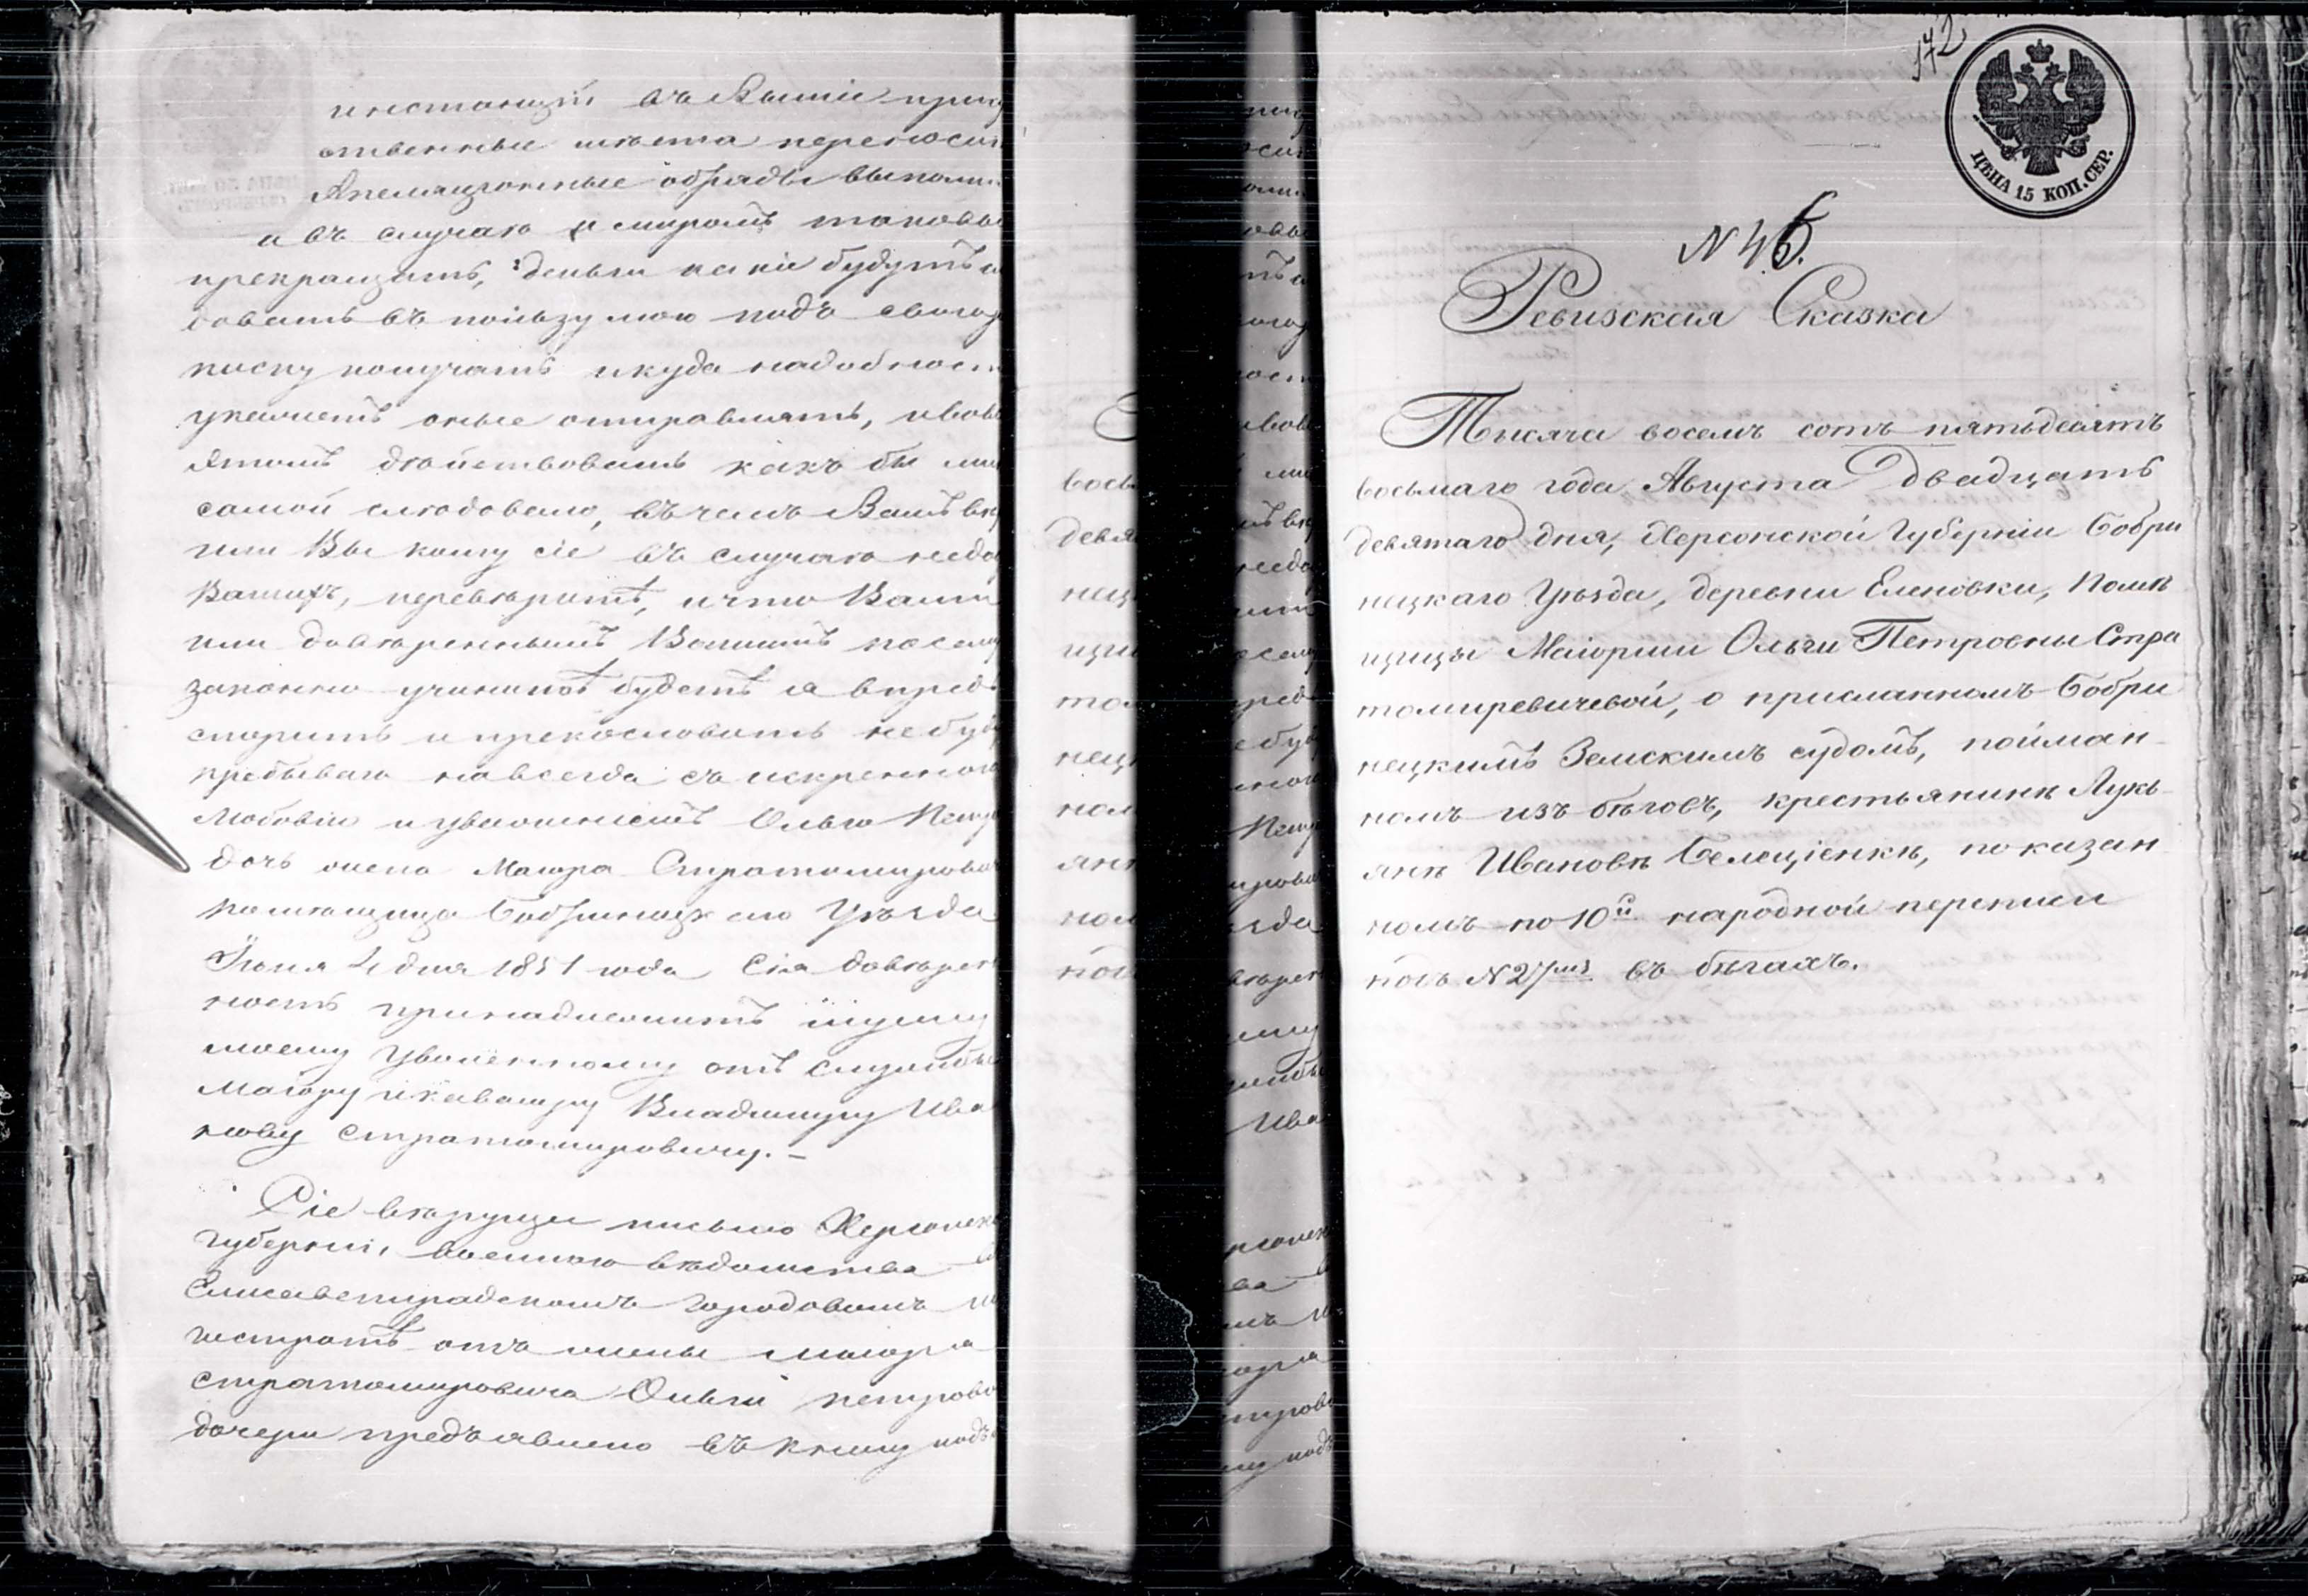 инстанціи въ Высшія прису
ственные мѣста переносит
Апеляціонные обряды выполн
и въ случаѣ и миромъ таковы
прекращать, деньги какіе будутъ
довать въ пользу мою подъ свою
писку получать и куда надобност
укажетъ оные отправлять, и во
этомъ дѣйствовать какъ бы мн
самой слѣдовало, въ чемъ Вамъ вѣ
или Вы кому сіе въ случаѣ недо
Вашихъ, перевѣрите, и что Вами
или довѣреннымъ Вашимъ по сему
законно учинино будетъ я впредь
спорить и прекословить не буду
пребываю на всегда съ искреннею
Любовію и уваженіемъ Ольга Петр
дочь жена Маіора Стратомирович
помѣщица Бобринецкаго Уѣзда
Іюня 4 дня 1851 года Сія довѣрен
ность принадлежитъ мужу
моему уволенному отъ службы
Маіору и кавалеру Владимиру Ива
нову Стратомировичу. —
Сіе вѣрующее письмо Херсонск
губерніи, военнаго вѣдомства
Елисаветградскомъ городовомъ м
гистратѣ отъ жены маіора
стратомировича Ольги петрово
дочери предъявлено въ книгу подъ
172
ЦѢНА 15 КОП. СЕР.
N 46.
Ревизская Сказка
Тысяча восемь сотъ пятьдесятъ
восьмаго года, Августа Двадцать
девятаго дня, Херсонской Губерніи Бобри
нецкаго Уѣзда, деревни Еленовки, Помѣ
щицы Маіорши Ольги Петровны Стра
томиревичевой, о присланномъ Бобри
нецкимъ Земскимъ судомъ, пойман-
номъ изъ бѣговъ, крестьянинѣ Лукь-
янѣ Ивановѣ Белеціенкѣ, показан
номъ по 10й народной переписи
подъ N 27мъ въ бѣгахъ.